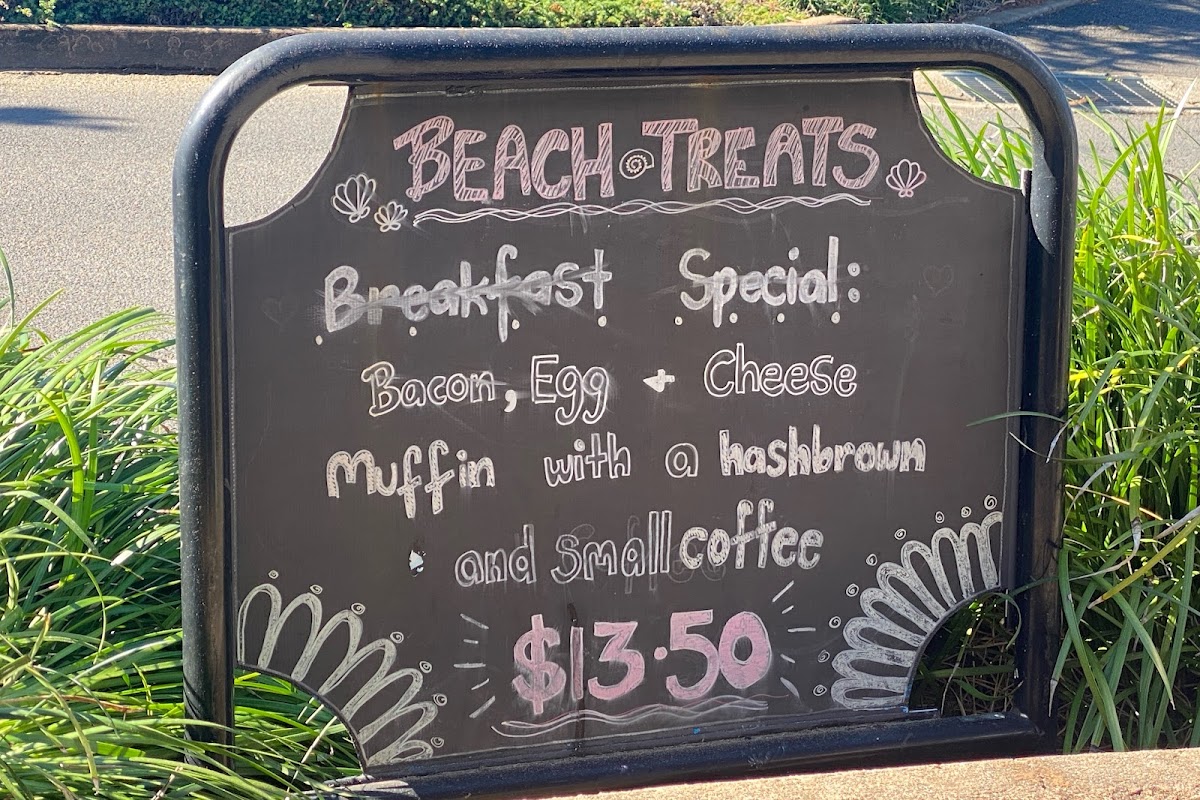 BEACH TREATS
Breakfast Special:
Bacon, Egg + Cheese
Muffin with a hashbrown
and small coffee
$13.50